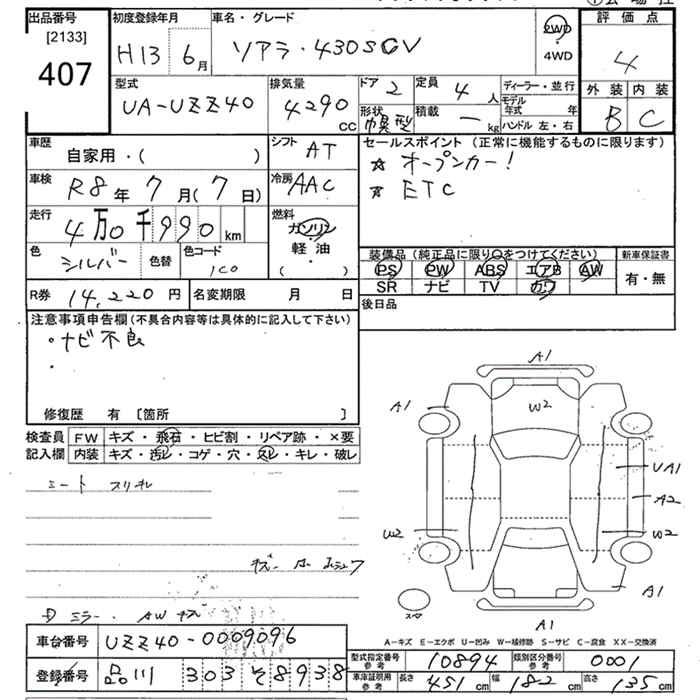 出品番号 初度登録年月 車名・グレード 評価点
[2133]
407
H13 6月 ソアラ・430SCV 2WD
4WD
4
型式 排気量 ドア 定員 ディーラー・並行 外装 内装
UA-UZZ40 4290cc 2 4人 モデル年式 年
形状 幌型 積載 ー kg ハンドル 左・右 B C
車歴 自家用・( ) シフト AT
セールスポイント(正常に機能するものに限ります)
☆ オープンカー!
☆ ETC
車検 R8年 7月(7日) 冷房 AAC
走行 4万0千990km 燃料 ガソリン
軽・油
( )
色 シルバー 色替 色コード 1C0
装備品(純正品に限り○をつけてください) 新車保証書
PS PW ABS エアB AW 有・無
SR ナビ TV カワ
R券 14,220円 名変期限 月 日 後日品
注意事項申告欄(不具合内容等は具体的に記入して下さい)
・ナビ不良
・
修復歴 有 [箇所 ]
検査員 FW キズ・飛石・ヒビ割・リペア跡・×要
記入欄 内装 キズ・汚レ・コゲ・穴・スレ・キレ・破レ
シート スリキレ
D ミラー・AWキズ
A1
A1 W2
UA1
A2
W2 W2
A1
スペア A1
A-キズ E-エクボ U-凹み W-補修跡 S-サビ C-腐食 XX-交換済
車台番号 UZZ40-0009096
登録番号 品川 303 そ 8938
型式指定番号 参考 10894 類別区分番号 参考 0001
車庫証明用 参考 長さ 451cm 幅 182cm 高さ 135cm